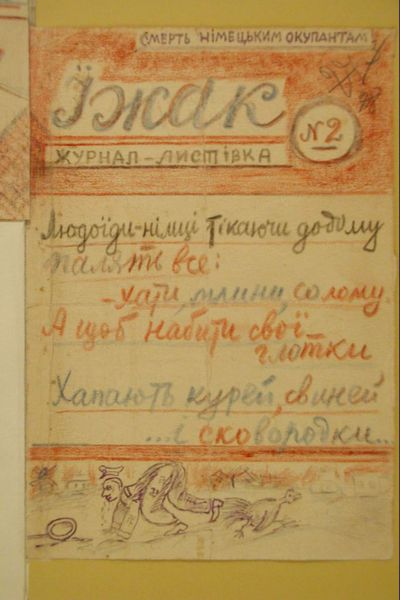 СМЕРТЬ НІМЕЦЬКИМ ОКУПАНТАМ
Їжак
№2
ЖУРНАЛ-ЛИСТІВКА
Людоїди-німці тікаючи додому
палять все:
-хати, млини, солому.
А щоб набити свої
глотки
Хапають курей, свиней
...і сковородки...